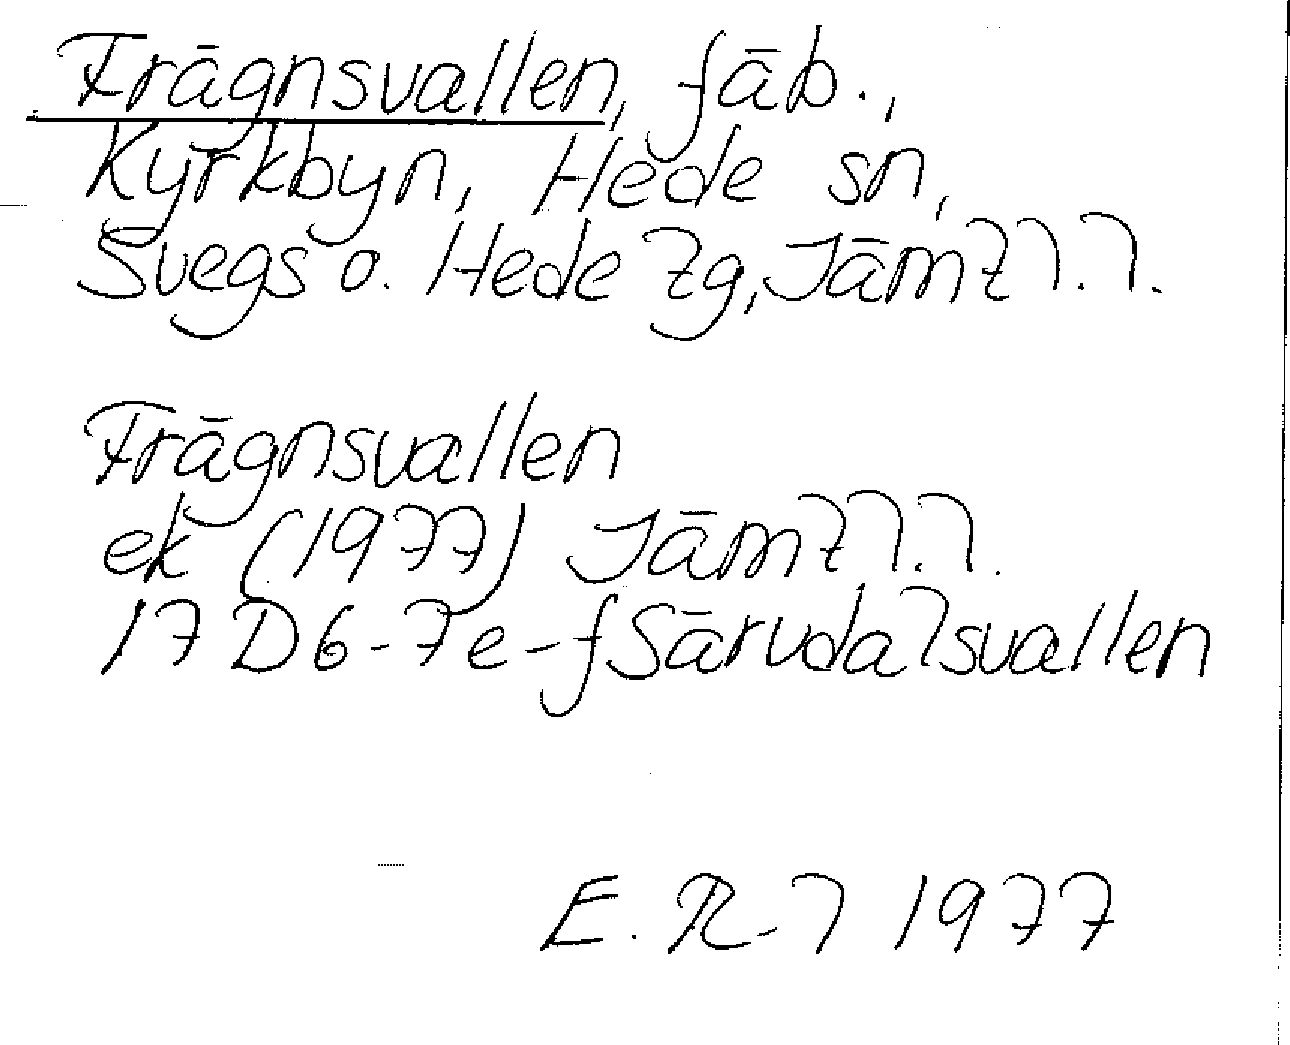 Frägnsvallen, fäb.,
Kyrkbyn, Hede sn,
Svegs o. Hede tg, Jämtl.l.
Frägnsvallen
ek (1977) Jämtl.l.
17 D 6-7 e-f Särvdalsvallen
E. R-l 1977